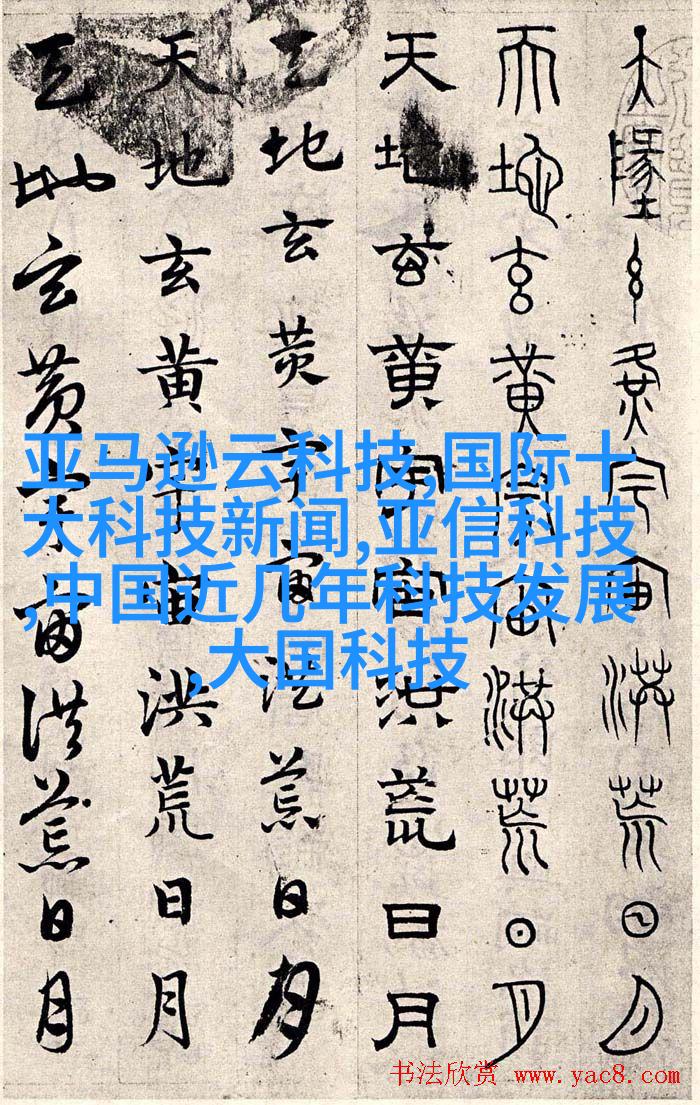 天墬玄黃宇宙洪荒日月
天地玄黃宇宙洪荒日月
天地玄黃宇宙洪荒日月
天地玄黃宇宙洪荒日月
天地玄黃宇宙洪荒日月
天地玄黃宇宙洪荒日月
亚马逊云科技,国际十
大科技新闻,亚信科技
,中国近几年科技发展
,大国科技
书法欣赏 www.yac8.com